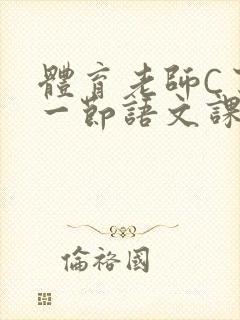 體育老師C
一節語文課
倫裕國